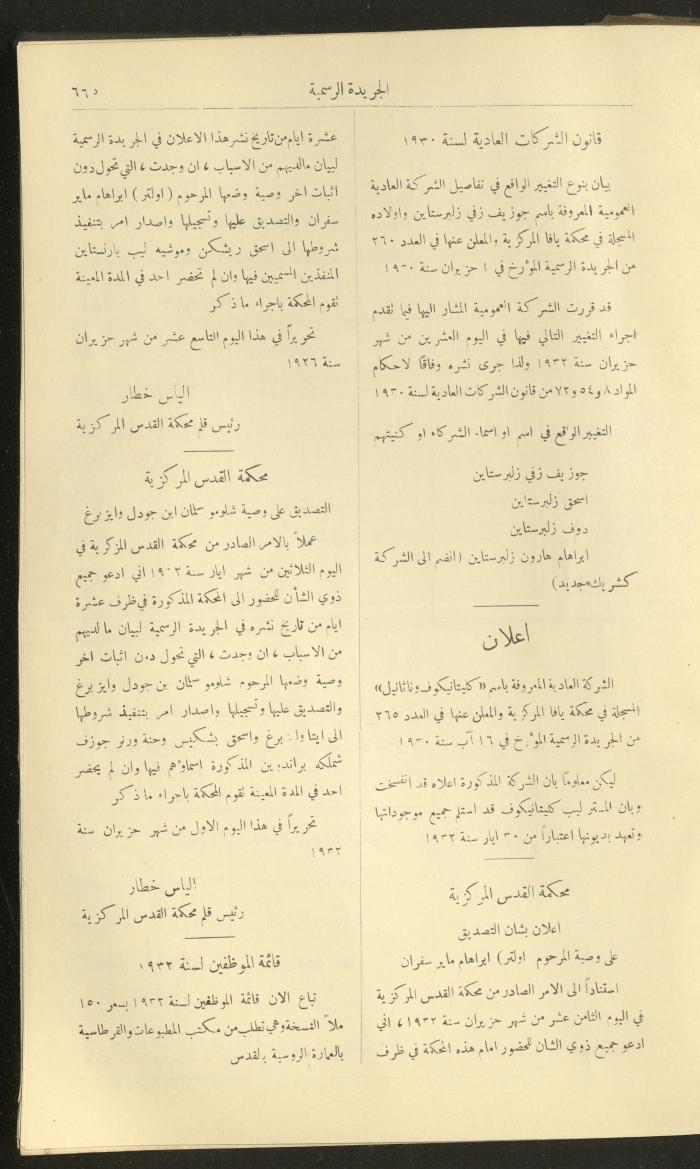 الجريدة الرسمية
٦٦٥
قانون الشركات العادية لسنة ١٩٣٠
بيان بنوع التغيير الواقع في تفاصيل الشركة العادية
العمومية المعروفة باسم جوزيف زفي زلبرستاين واولاده
المسجلة في محكمة يافا المركزية والمعلن عنها في العدد ٢٦٠
من الجريدة الرسمية المؤرخ في ١ حزيران سنة ١٩٣٠
قد قررت الشركة العمومية المشار اليها فيما تقدم
اجراء التغيير التالي فيها في اليوم العشرين من شهر
حزيران سنة ١٩٣٢ ولذا جرى نشره وفاقًا لاحكام
المواد ٨ و ٥٤ و ٧٢ من قانون الشركات العادية لسنة ١٩٣٠
التغيير الواقع في اسم او اسماء الشركاء او كنيتهم
جوزيف زفي زلبرستاين
اسحق زلبرستاين
دوف زلبرستاين
ابراهام هارون زلبرستاين (انضم الى الشركة
كشريك جديد)
اعلان
الشركة العادية المعروفة باسم «كليتانيكوف وناثانيل»
المسجلة في محكمة يافا المركزية والمعلن عنها في العدد ٢٦٥
من الجريدة الرسمية المؤرخ في ١٦ آب سنة ١٩٣٠
ليكن معلومًا بان الشركة المذكورة اعلاه قد انفسخت
وبان المستر ليب كليتانيكوف قد استلم جميع موجوداتها
وتعهد بديونها اعتبارًا من ٣٠ ايار سنة ١٩٣٢
محكمة القدس المركزية
اعلان بشان التصديق
على وصية المرحوم اولتر) ابراهام ماير سفران
استنادًا الى الامر الصادر من محكمة القدس المركزية
في اليوم الثامن عشر من شهر حزيران سنة ١٩٣٢، اني
ادعو جميع ذوي الشان للحضور امام هذه المحكمة في ظرف
عشرة ايام من تاريخ نشر هذا الاعلان في الجريدة الرسمية
لبيان مالديهم من الاسباب، ان وجدت، التي تحول دون
اثبات اخر وصية وضعها المرحوم (اولتر) ابراهام ماير
سفران والتصديق عليها وتسجيلها واصدار امر بتنفيذ
شروطها الى اسحق ريشكن وموشيه ليب بارنستاين
المنفذين المسميين فيها وان لم تحضر احد في المدة المعينة
تقوم المحكمة باجراء ما ذكر
تحريرًا في هذا اليوم التاسع عشر من شهر حزيران
سنة ١٩٢٦
الياس خطار
رئيس قلم محكمة القدس المركزية
محكمة القدس المركزية
التصديق على وصية شلومو سلمان ابن جودل وايزبرغ
عملاً بالامر الصادر من محكمة القدس المركزية في
اليوم الثلاثين من شهر ايار سنة ١٩٣٢ اني ادعو جميع
ذوي الشأن للحضور الى المحكمة المذكورة في ظرف عشرة
ايام من تاريخ نشره في الجريدة الرسمية لبيان ما لديهم
من الاسباب، ان وجدت، التي تحول دون اثبات اخر
وصية وضعها المرحوم شلومو سلمان بن جودل وايزبرغ
والتصديق عليها وتسجيلها واصدار امر بتنفيذ شروطها
الى ايتا برغ واسحق بشكيس وحنة ورنر جوزف
شملكه المذكورة اسماؤهم فيها وان لم يحضر
احد في المدة المعينة تقوم المحكمة باجراء ما ذكر
تحريرًا في هذا اليوم الاول من شهر حزيران سنة
١٩٣٢
الياس خطار
رئيس قلم محكمة القدس المركزية
قائمة الموظفين لسنة ١٩٣٢
تباع الان قائمة الموظفين لسنة ١٩٣٢ بسعر ١٥٠
ملاً النسخة وهي تطلب من مكتب المطبوعات والقرطاسية
بالعمارة الروسية بالقدس